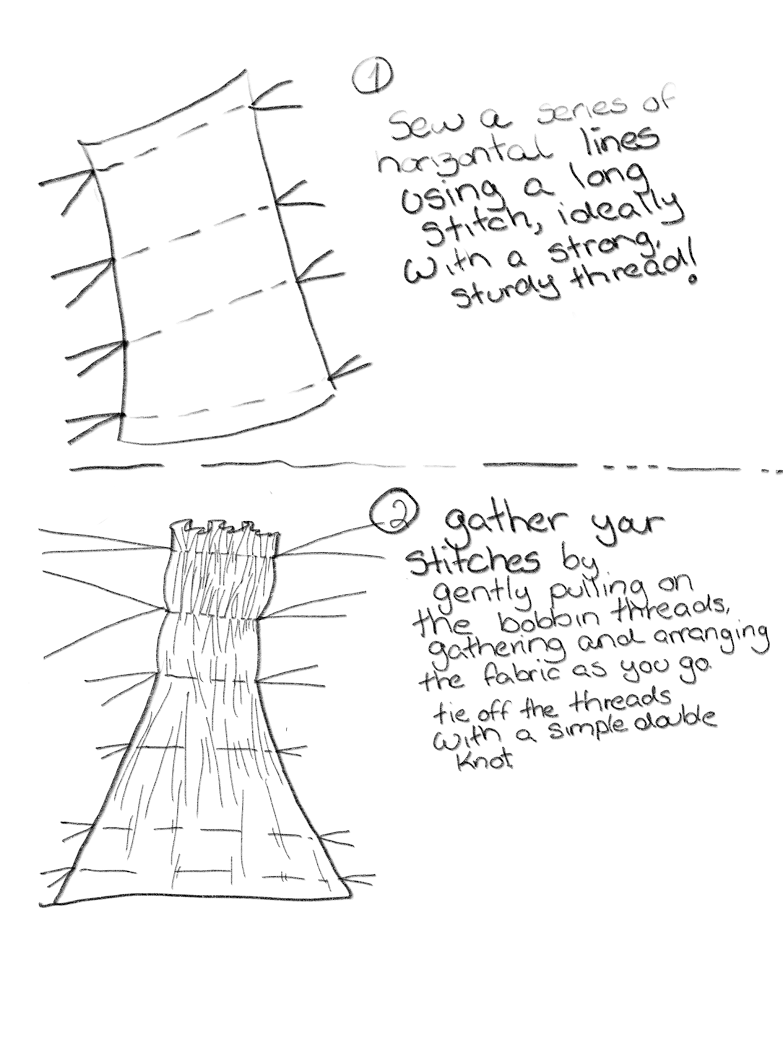 1
Sew a series of
horizontal lines
using a long
stitch, ideally
with a strong,
sturdy thread!
2
gather your
stitches by
gently pulling on
the bobbin threads,
gathering and arranging
the fabric as you go.
tie off the threads
with a simple double
knot.